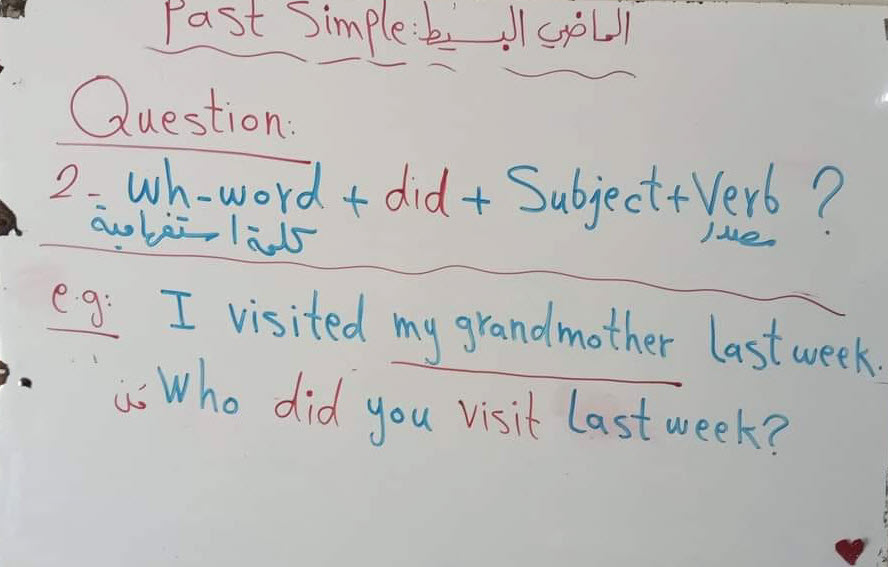 Past Simple: الماضي البسيط
Question:
2- wh-word + did + Subject + Verb ?
كلمة استفهامية مصدر
e.g: I visited my grandmother last week.
مَن Who did you visit last week?